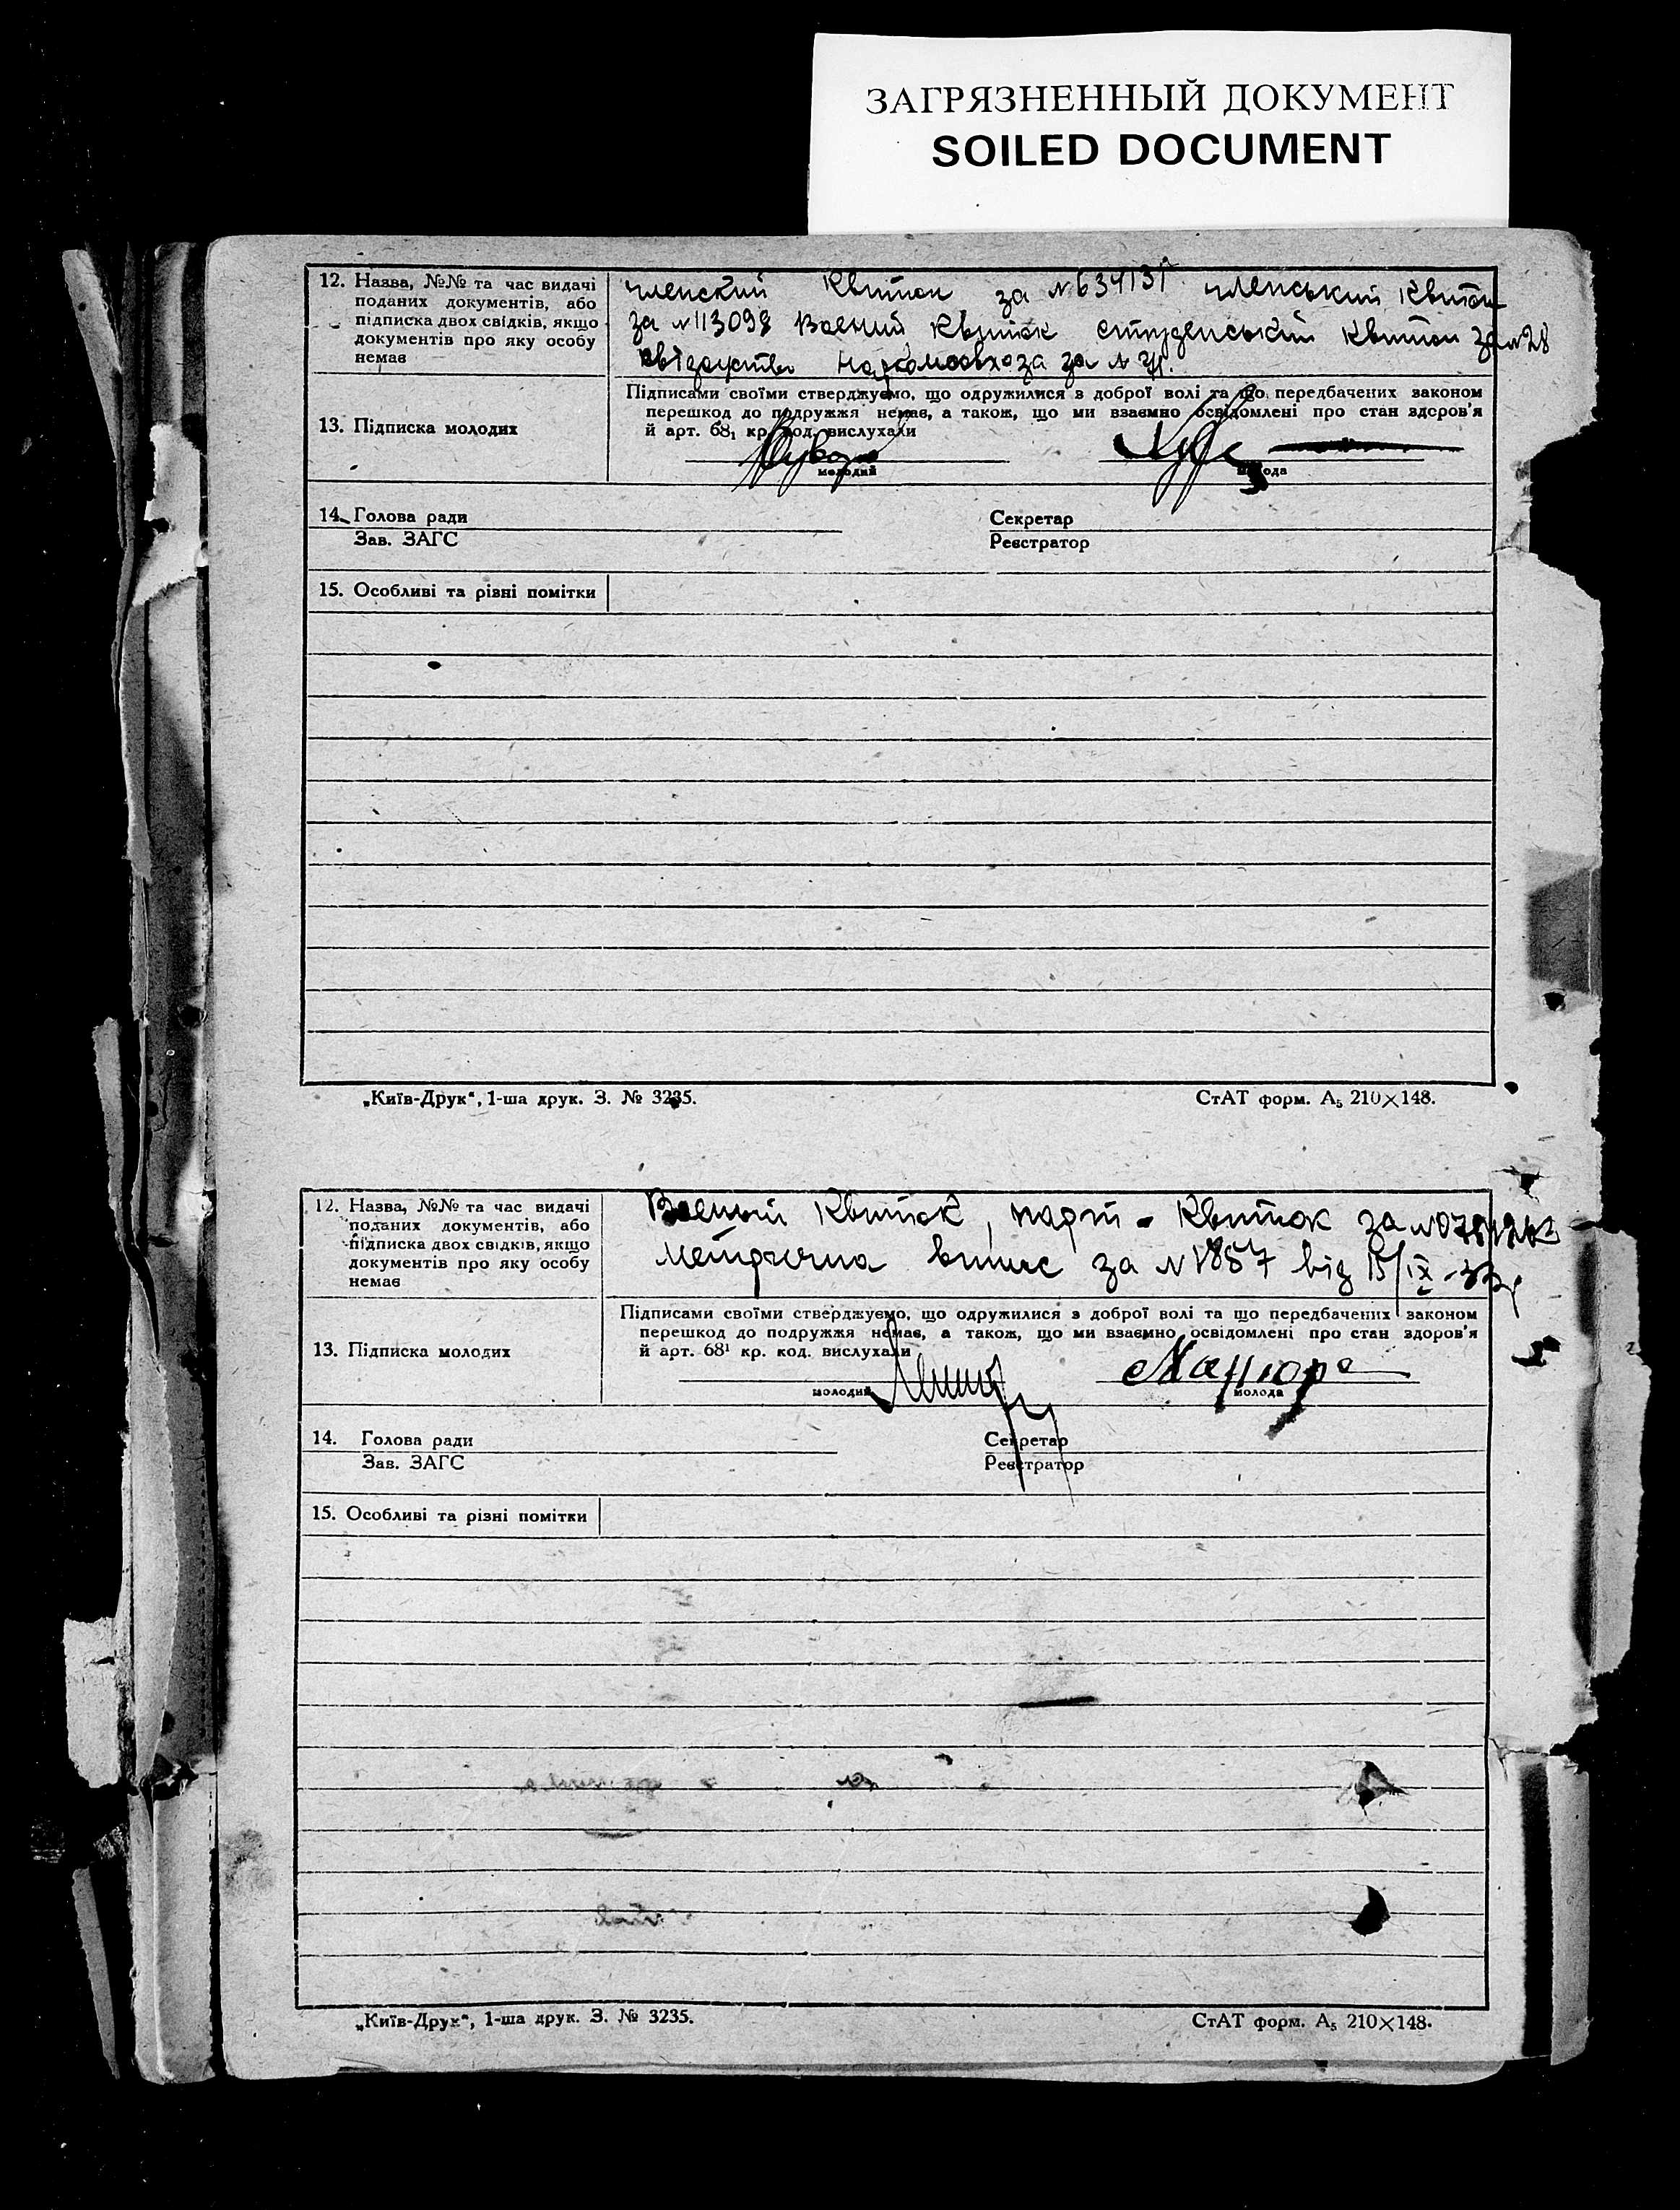 ЗАГРЯЗНЕННЫЙ ДОКУМЕНТ
SOILED DOCUMENT
12. Назва, №№ та час видачі
поданих документів, або
підписка двох свідків, якщо
документів про яку особу
немає
членский квиток за № 634131 членський квиток
за № 113098 Воений квиток студенський квиток за № 28
за №
13. Підписка молодих
Підписами своїми стверджуємо, що одружилися з доброї волі та що передбачених законом
перешкод до подружжя немає, а також, що ми взаємно освідомлені про стан здоров'я
й арт. 68₁ кр. код. вислухали
молодий
молода
14. Голова ради
Секретар
Зав. ЗАГС
Реєстратор
15. Особливі та різні помітки
„Київ-Друк“, 1-ша друк. З. № 3235.
СтАТ форм. А₅ 210×148.
12. Назва, №№ та час видачі
поданих документів, або
підписка двох свідків, якщо
документів про яку особу
немає
Воений квиток, парт-квиток за №
метрична випис за № 1857 від 15/IX
13. Підписка молодих
Підписами своїми стверджуємо, що одружилися з доброї волі та що передбачених законом
перешкод до подружжя немає, а також, що ми взаємно освідомлені про стан здоров'я
й арт. 68¹ кр. код. вислухали
молодий
молода
14. Голова ради
Секретар
Зав. ЗАГС
Реєстратор
15. Особливі та різні помітки
„Київ-Друк“, 1-ша друк. З. № 3235.
СтАТ форм. А₅ 210×148.